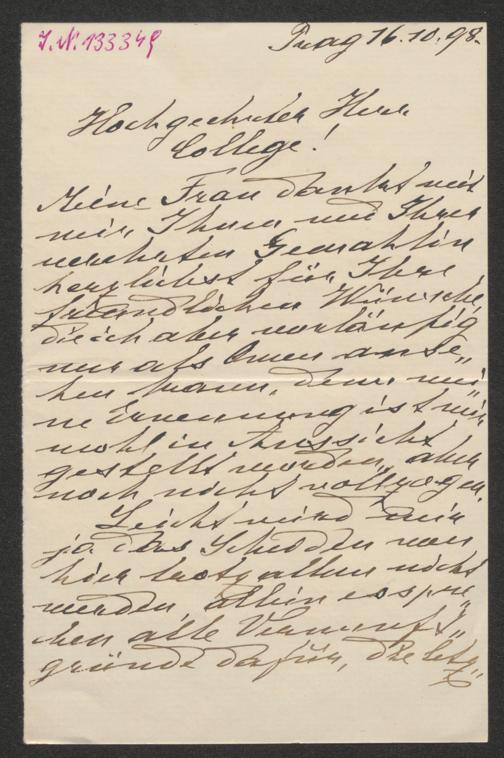 I.N. 133349
Prag 16.10.98.
Hochgeehrter Herr
College!
Meine Frau dankt mit
mir Ihnen und Ihrer
verehrten Gemahlin
herzlichst für Ihre
freundlichen Wünsche,
die ich aber vorläufig
nur als Omen anse„
hen kann, denn mei
ne Ernennung ist mir
wohl in Aussicht
gestellt worden, aber
noch nicht vollzogen.
Leicht wird mir
ja das Scheiden von
hier trotz allem nicht
werden, allein es spre„
chen alle Vernunft„
gründe dafür, die letz„